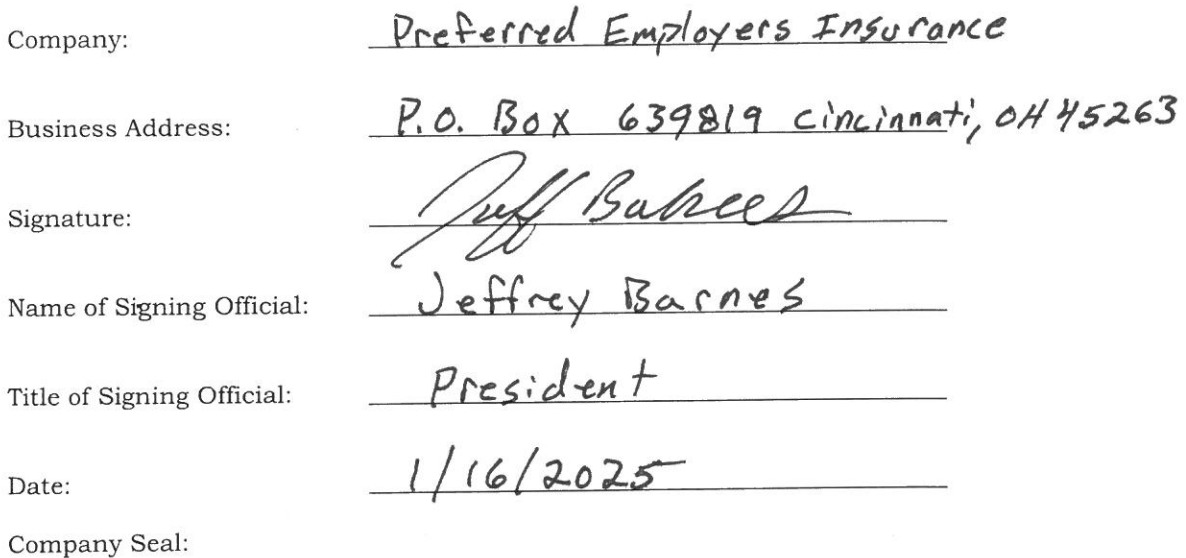 Company: Preferred Employers Insurance
Business Address: P.O. Box 639819 Cincinnati, OH 45263
Signature: Jeff Barnes
Name of Signing Official: Jeffrey Barnes
Title of Signing Official: President
Date: 1/16/2025
Company Seal: